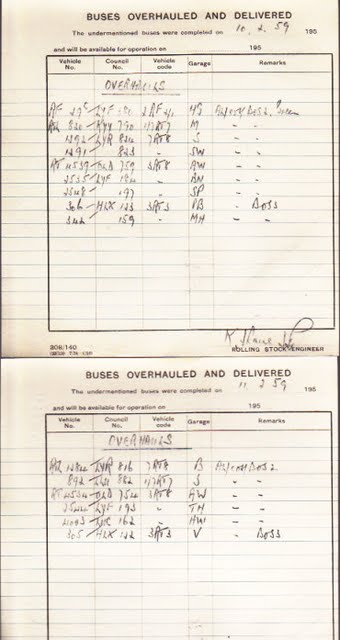 BUSES OVERHAULED AND DELIVERED
The undermentioned buses were completed on 10.2.59 195
and will be available for operation on 195
Vehicle No. Council No. Vehicle code Garage Remarks
OVERHAULS
RF LYF 2RF2/1 HG
820 KYY 790 M - -
1292 LYR 824 7RT8 S - -
1291 823 " SW - -
RT 4539 OLD 759 3RT8 AW - -
2535 LYF 184 " AN - -
2548 197 " SP - -
306 HLX 123 3RT3 PB - DOSS
342 159 " MH - -
308/140
ROLLING STOCK ENGINEER
BUSES OVERHAULED AND DELIVERED
The undermentioned buses were completed on 11.2.59 195
and will be available for operation on 195
Vehicle No. Council No. Vehicle code Garage Remarks
OVERHAULS
1284 LYR 816 7RT8 B
892 882 S - -
RT 4534 OLD 754 3RT8 AW - -
2544 LYF 193 " TH - -
162 " HW - -
305 HLX 122 3RT3 V - DOSS